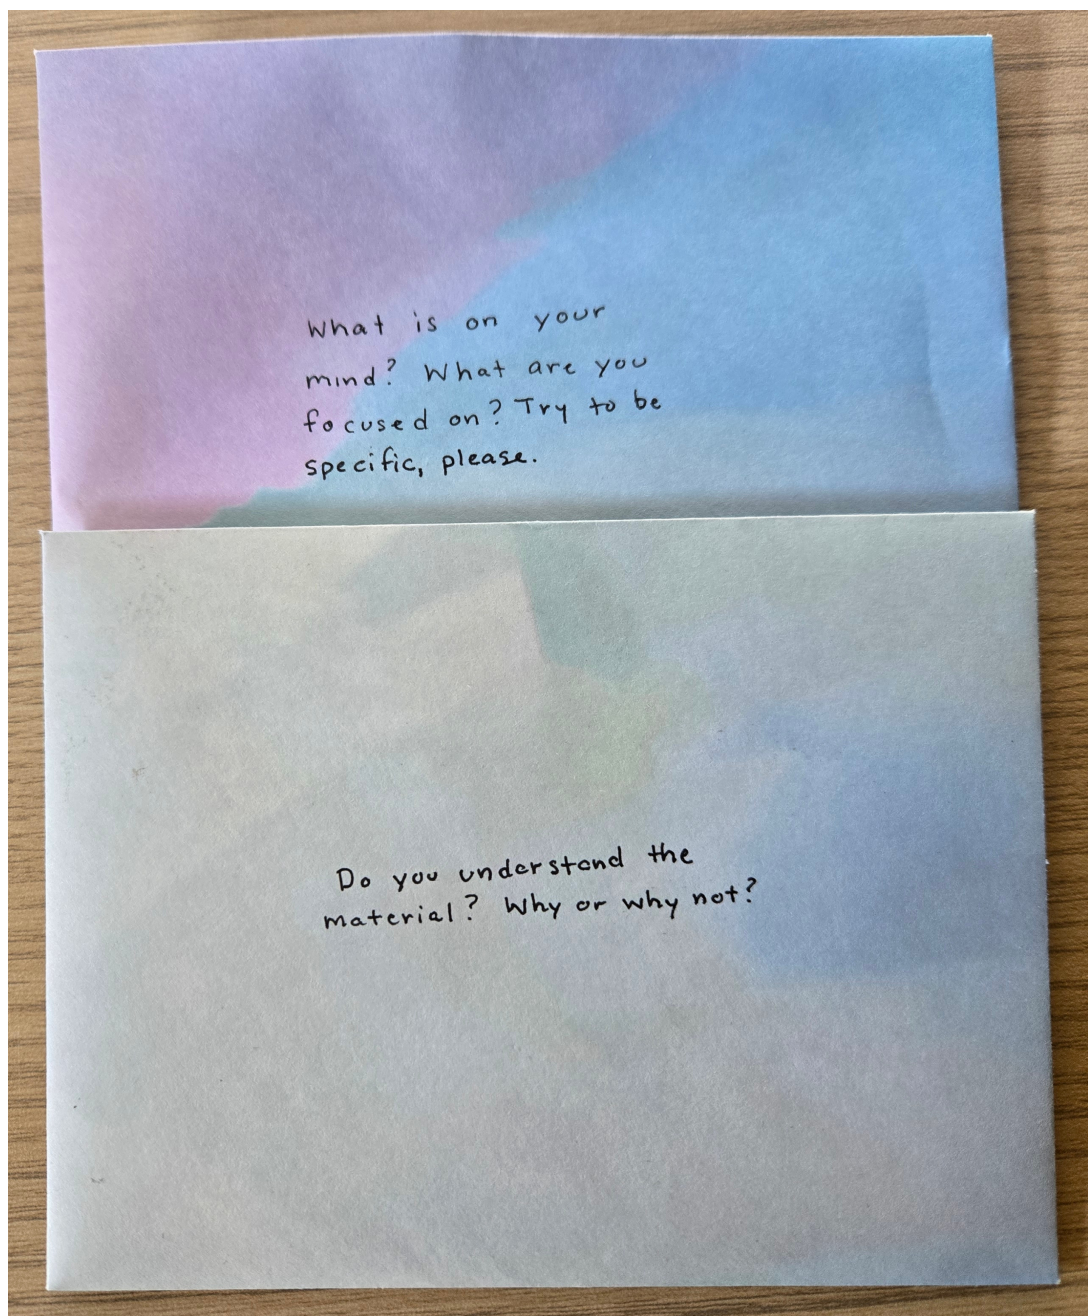 What is on your
mind? What are you
focused on? Try to be
specific, please.
Do you understand the
material? Why or why not?